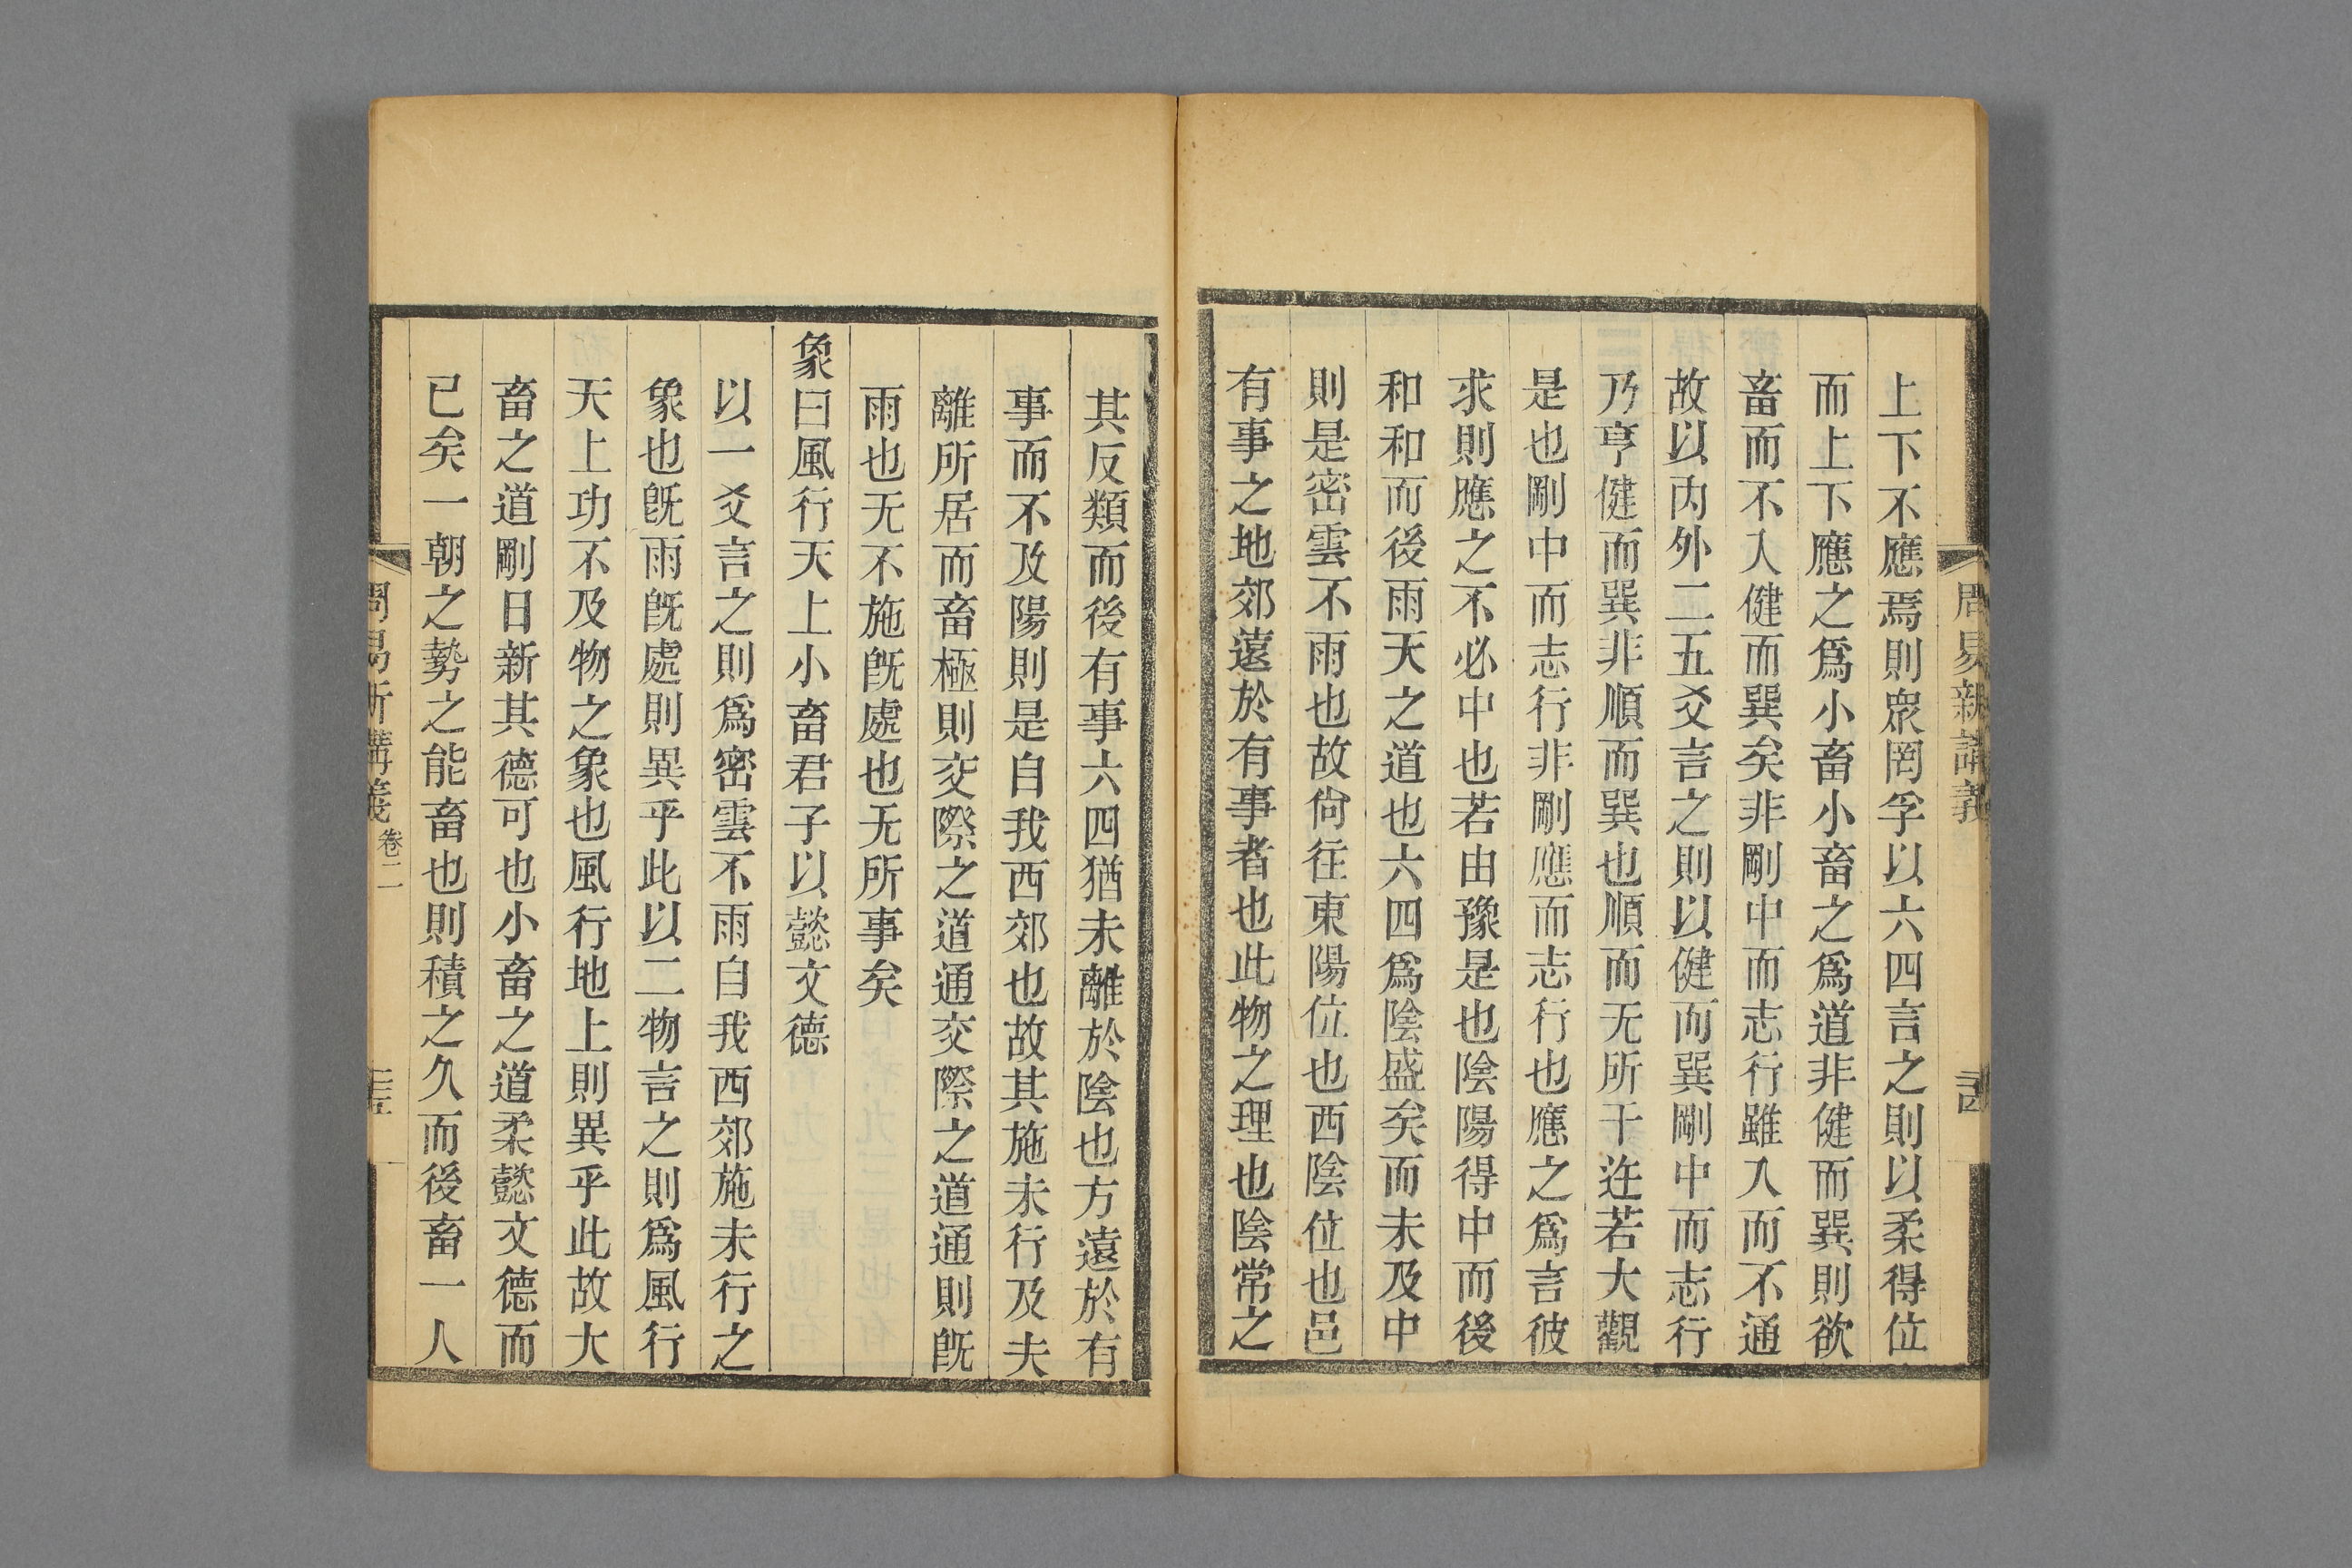 周易新講義
上下不應焉則衆罔孚以六四言之則以柔得位
而上下應之爲小畜小畜之爲道非健而巽則欲
畜而不入健而巽矣非剛中而志行雖入而不通
故以内外二五爻言之則以健而巽剛中而志行
乃亨健而巽非順而巽也順而无所干迕若大觀
是也剛中而志行非剛應而志行也應之爲言彼
求則應之不必中也若由豫是也陰陽得中而後
和和而後雨天之道也六四爲陰盛矣而未及中
則是密雲不雨也故尙往東陽位也西陰位也邑
有事之地郊遠於有事者也此物之理也陰常之
其反類而後有事六四猶未離於陰也方遠於有
事而不及陽則是自我西郊也故其施未行及夫
離所居而畜極則交際之道通交際之道通則旣
雨也无不施旣處也无所事矣
象曰風行天上小畜君子以懿文德
以一爻言之則爲密雲不雨自我西郊施未行之
象也旣雨旣處則異乎此以二物言之則爲風行
天上功不及物之象也風行地上則異乎此故大
畜之道剛日新其德可也小畜之道柔懿文德而
已矣一朝之勢之能畜也則積之久而後畜一人
周易新講義 卷二